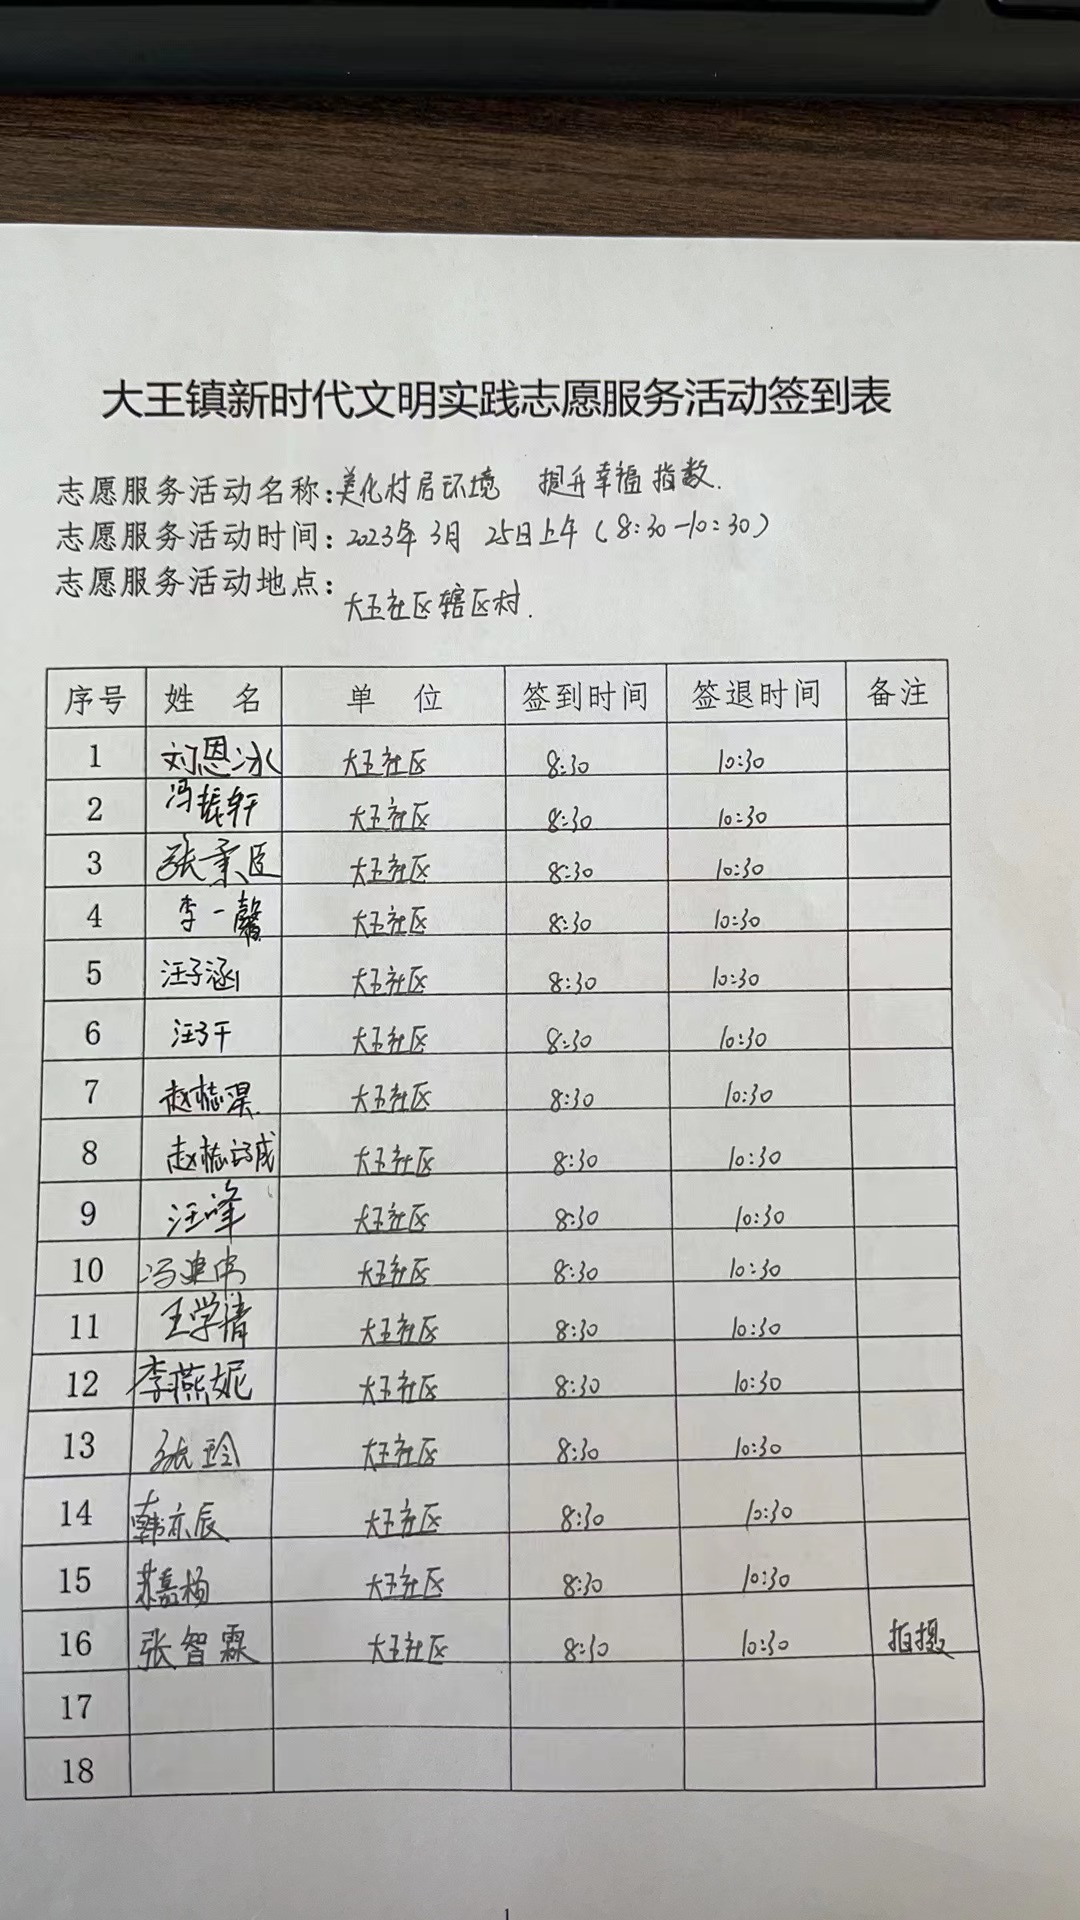 大王镇新时代文明实践志愿服务活动签到表
志愿服务活动名称：美化村居环境 提升幸福指数.
志愿服务活动时间：2023年3月 25日上午（8:30-10:30）
志愿服务活动地点：
大王社区辖区村.
序号 姓 名 单 位 签到时间 签退时间 备注
1 刘恩冰 大王社区 8:30 10:30
2 冯振轩 大王社区 8:30 10:30
3 张秉臣 大王社区 8:30 10:30
4 李一馨 大王社区 8:30 10:30
5 汪子涵 大王社区 8:30 10:30
6 汪子千 大王社区 8:30 10:30
7 大王社区 8:30 10:30
8 大王社区 8:30 10:30
9 汪峰 大王社区 8:30 10:30
10 冯建伟 大王社区 8:30 10:30
11 王学清 大王社区 8:30 10:30
12 李燕妮 大王社区 8:30 10:30
13 张玲 大王社区 8:30 10:30
14 韩亦辰 大王社区 8:30 10:30
15 苏嘉杨 大王社区 8:30 10:30
16 张智霖 大王社区 8:30 10:30 拍摄
17
18
1